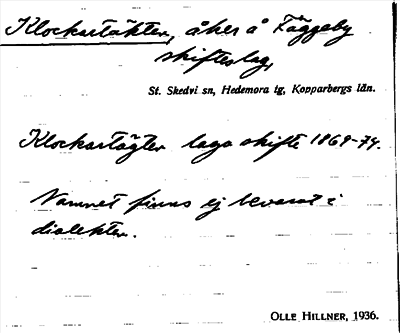 Klockartäkten, åker å Fäggeby
skifteslag,
St. Skedvi sn, Hedemora tg, Kopparbergs län.
Klockartägter laga skifte 1869-74.
Namnet finns ej bevarat i
dialekten.
OLLE HILLNER, 1936.